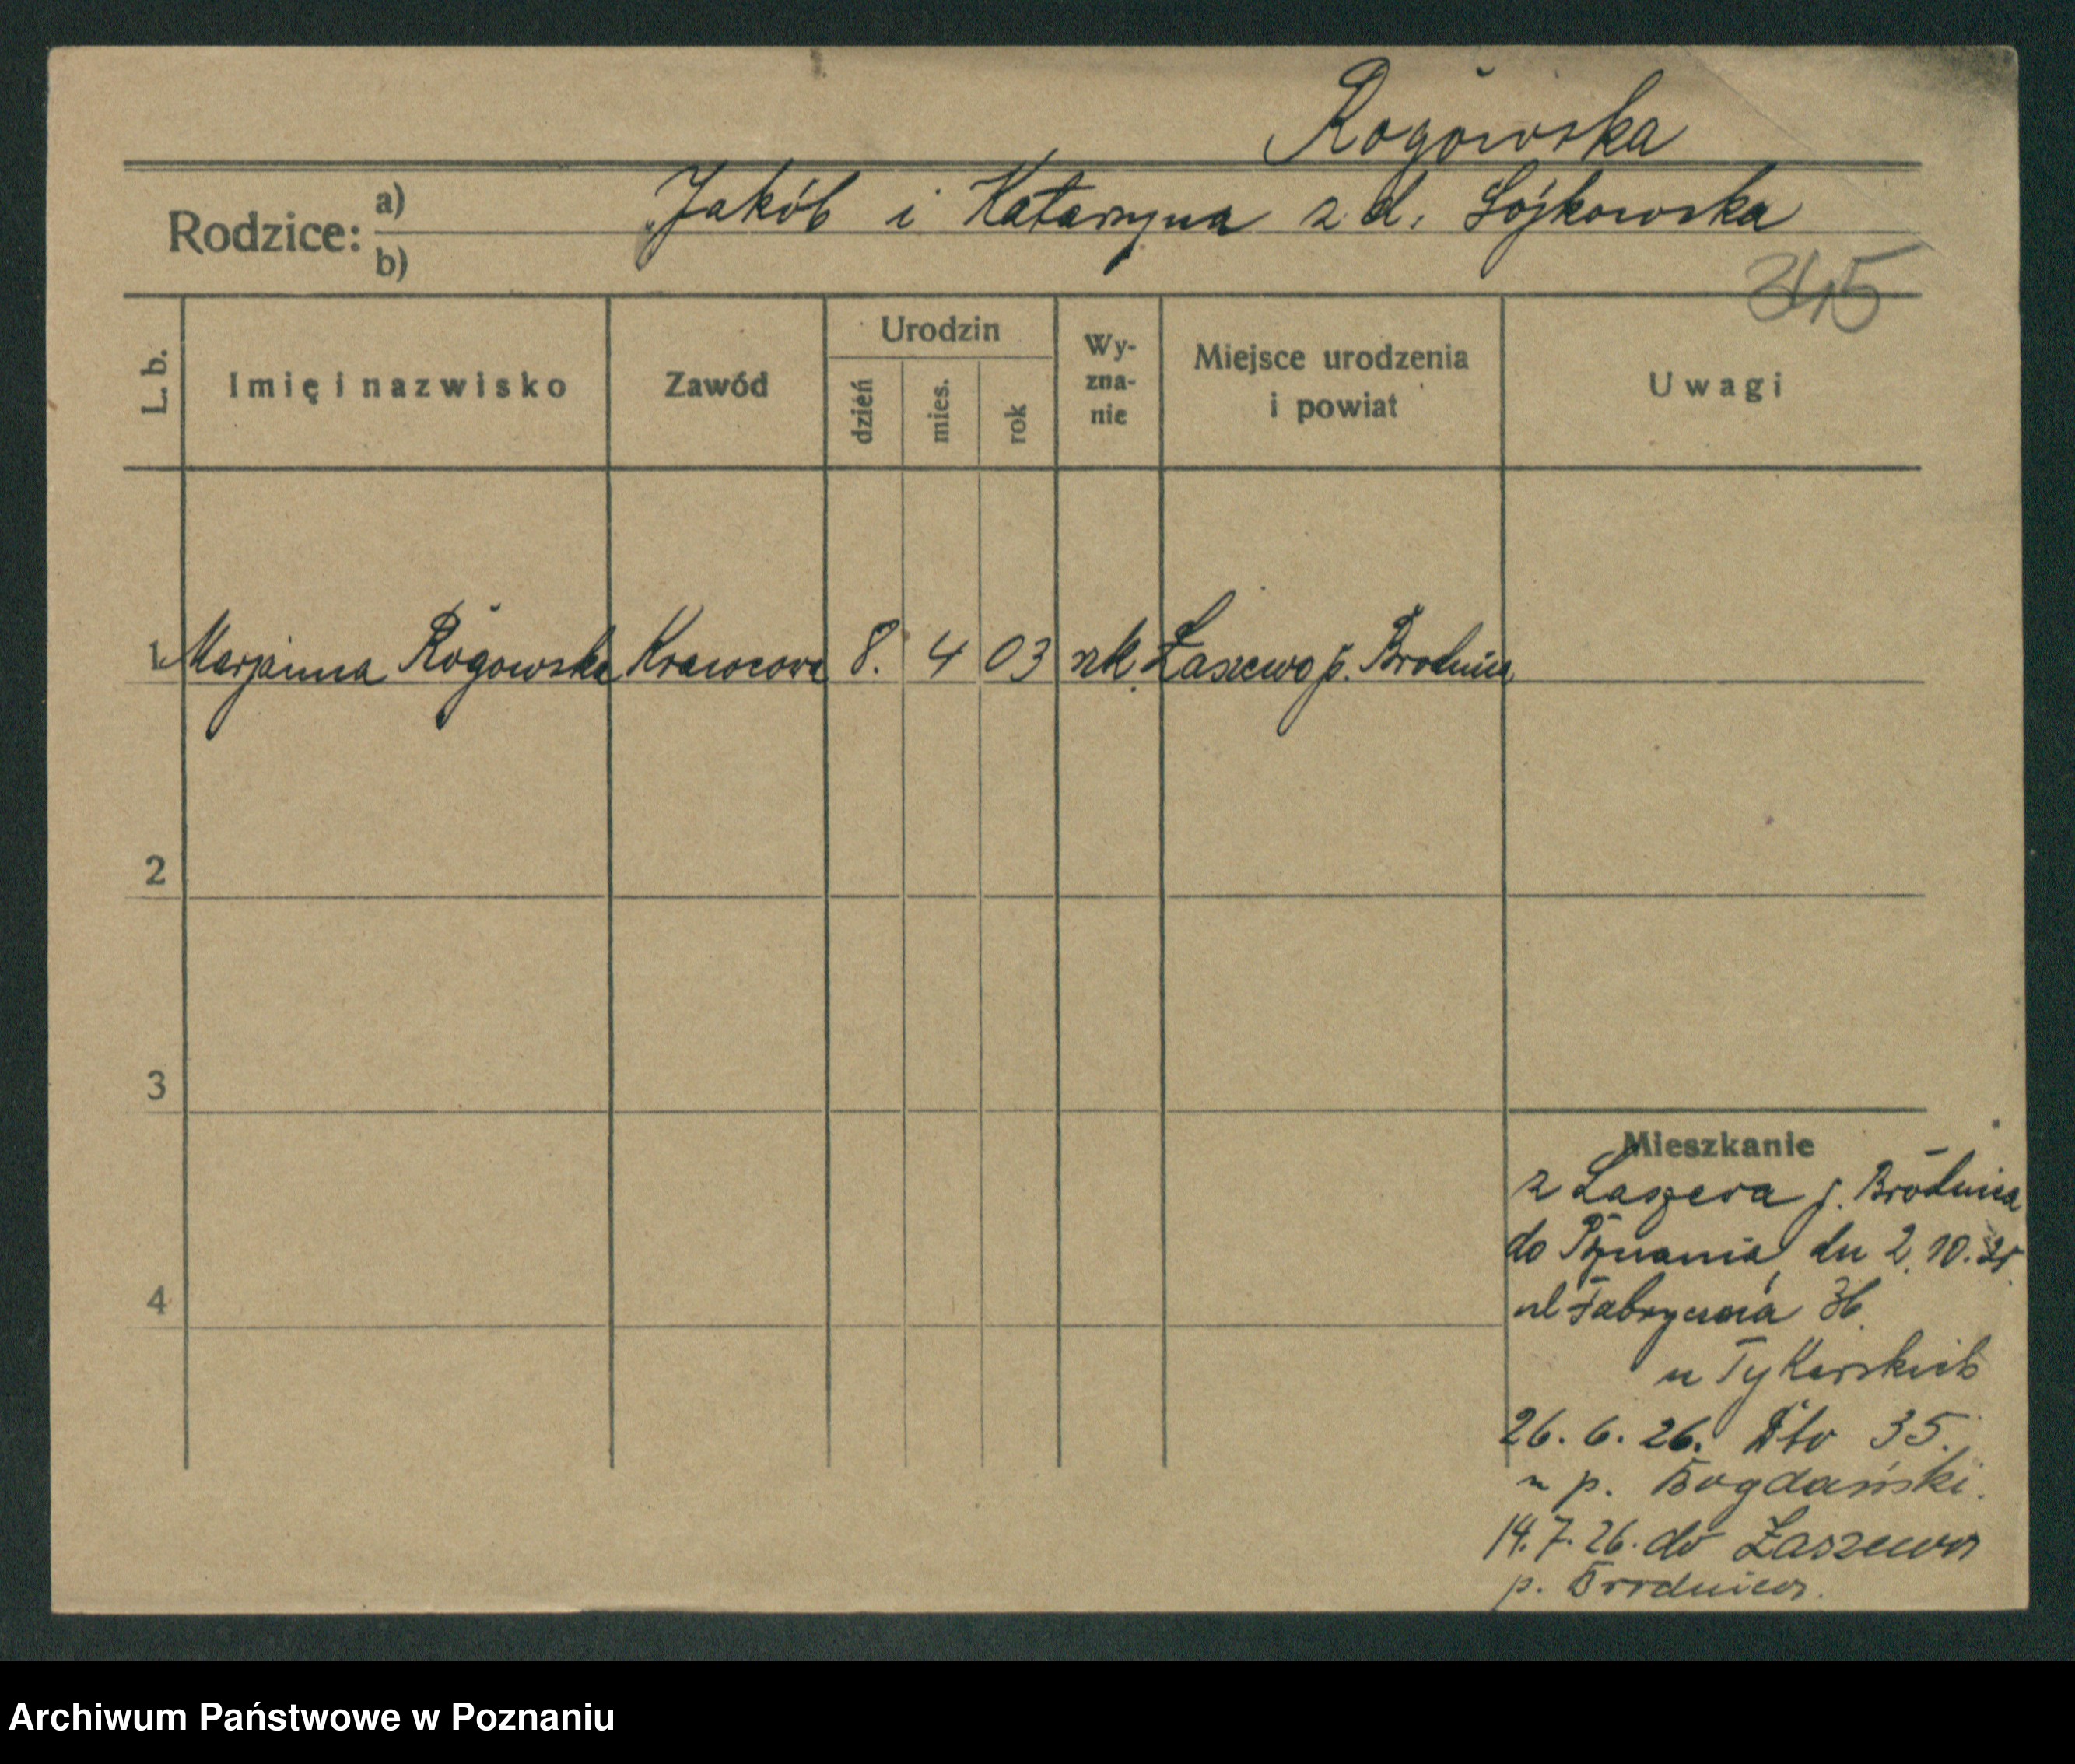 Rogowska
Rodzice: a) Jakób i Katarzyna z d. Łójkowska
b)
345
L. b. Imię i nazwisko Zawód Urodzin dzień mies. rok Wy-zna-nie Miejsce urodzenia i powiat Uwagi
1 Marjanna Rogowska Krawcowa 8. 4 03 rk. Łaszewo p. Brodnica
2
3
4
Mieszkanie
z p. Brodnica
do Poznania dn 2.10.25.
ul Fabryczna 36.
u Tykarskich
26.6.26. Dto 35.
u p. Bogdański.
14.7.26. do Łaszewo
p. Brodnica.
Archiwum Państwowe w Poznaniu